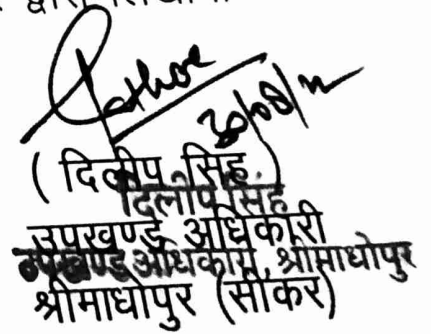 द्वारा
Rathore
30/08/
( दिलीप सिंह )
दिलीप सिंह
उपखण्ड अधिकारी
उपखण्ड अधिकारी श्रीमाधोपुर
श्रीमाधोपुर (सीकर)